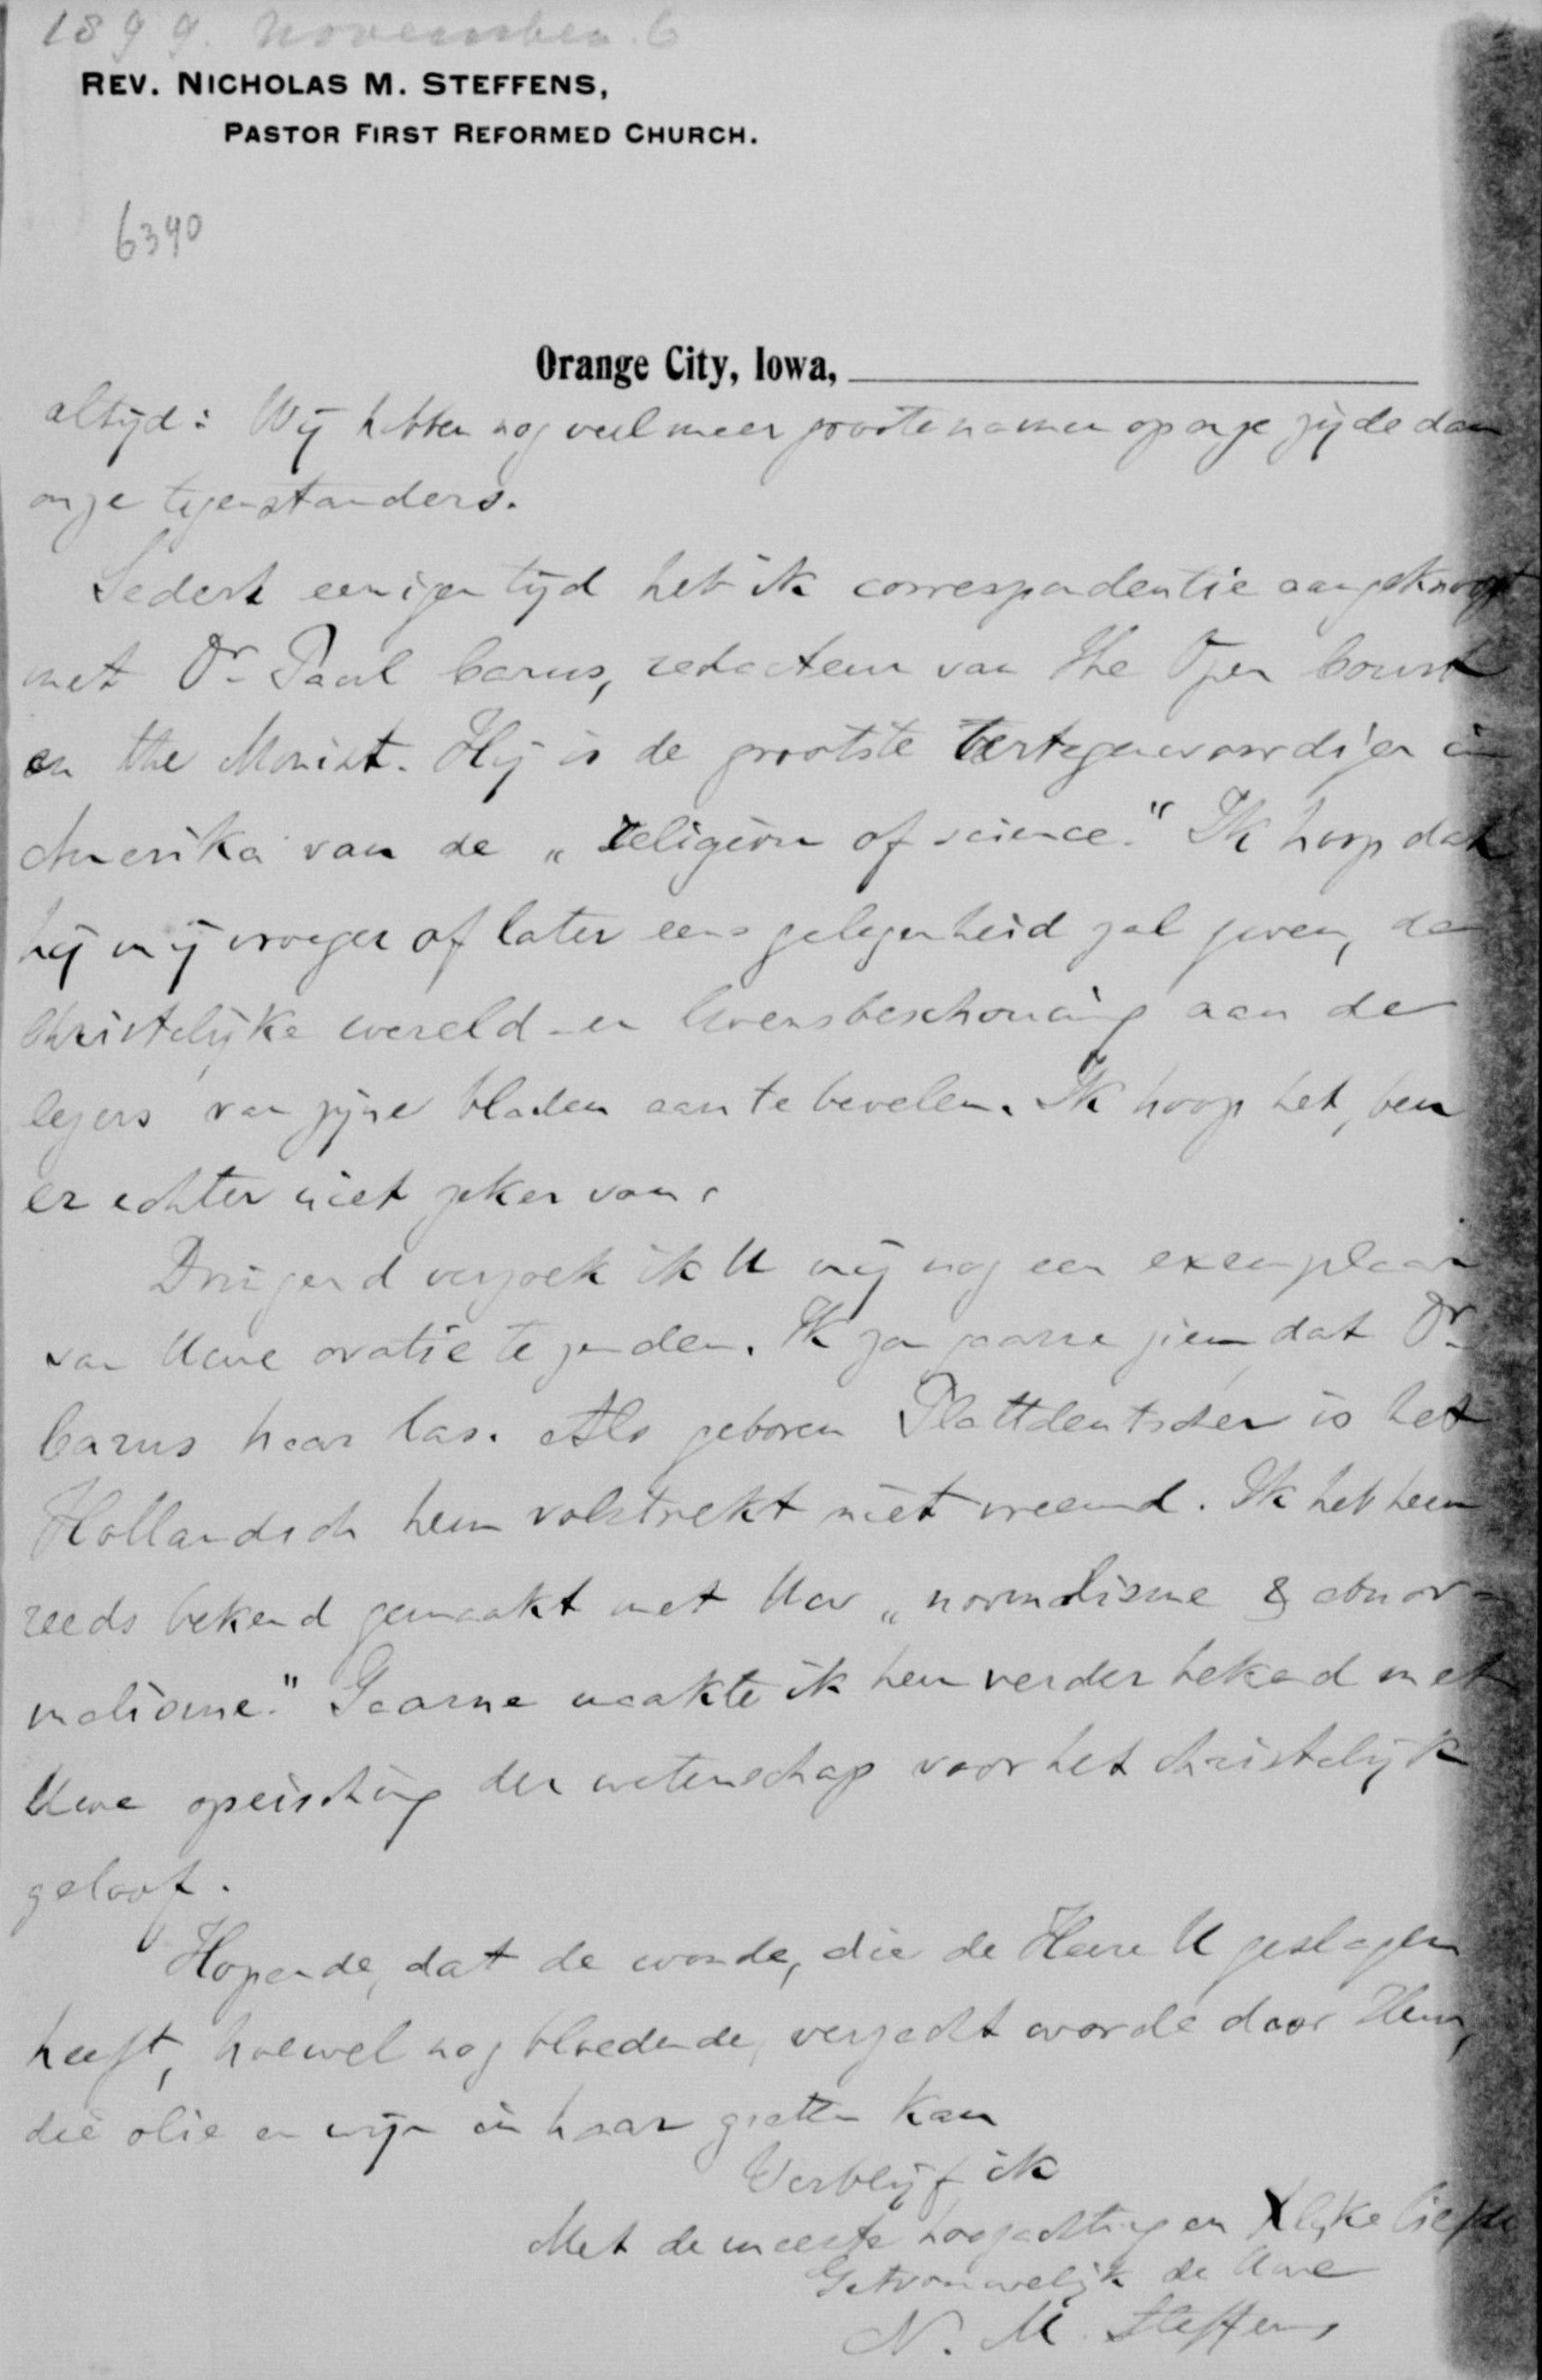 1899. November. 6
REV. NICHOLAS M. STEFFENS,
PASTOR FIRST REFORMED CHURCH.
6390
Orange City, Iowa,
altijd: Wij hebben nog veel meer groote namen op onze zijde dan
onze tegenstanders.
Sedert eenigen tijd heb ik correspondentie aangeknoopt
met Dr. Paul Carus, redacteur van The Open Court
en the Monist. Hij is de grootste vertegenwoordiger in
Amerika van de „religion of science." Ik hoop dat
hij mij vroeger of later eens gelegenheid zal geven, de
christelijke wereld-en levensbeschouwing aan de
lezers van zijne bladen aan te bevelen. Ik hoop het, ben
er echter niet zeker van.
Dringend verzoek ik U mij nog een exemplaar
van Uwe oratie te zenden. Ik zou gaarne zien dat Dr.
Carus haar las. Als geboren Plattdeutscher is het
Hollandsch hem volstrekt niet vreemd. Ik heb hem
reeds bekend gemaakt met Uw „normalisme & abnor-
malisme." Gaarne maakte ik hem verder bekend met
Uwe opeisching der wetenschap voor het christelijk
geloof.
Hopende, dat de wonde, die de Heere U geslagen
heeft, hoewel nog bloedende, verzacht worde door Hem,
die olie en wijn in haar gieten kan
Verblijf ik
Met de meeste hoogachting en Xlijke liefde
Getrouwelijk de Uwe
N. M. Steffens